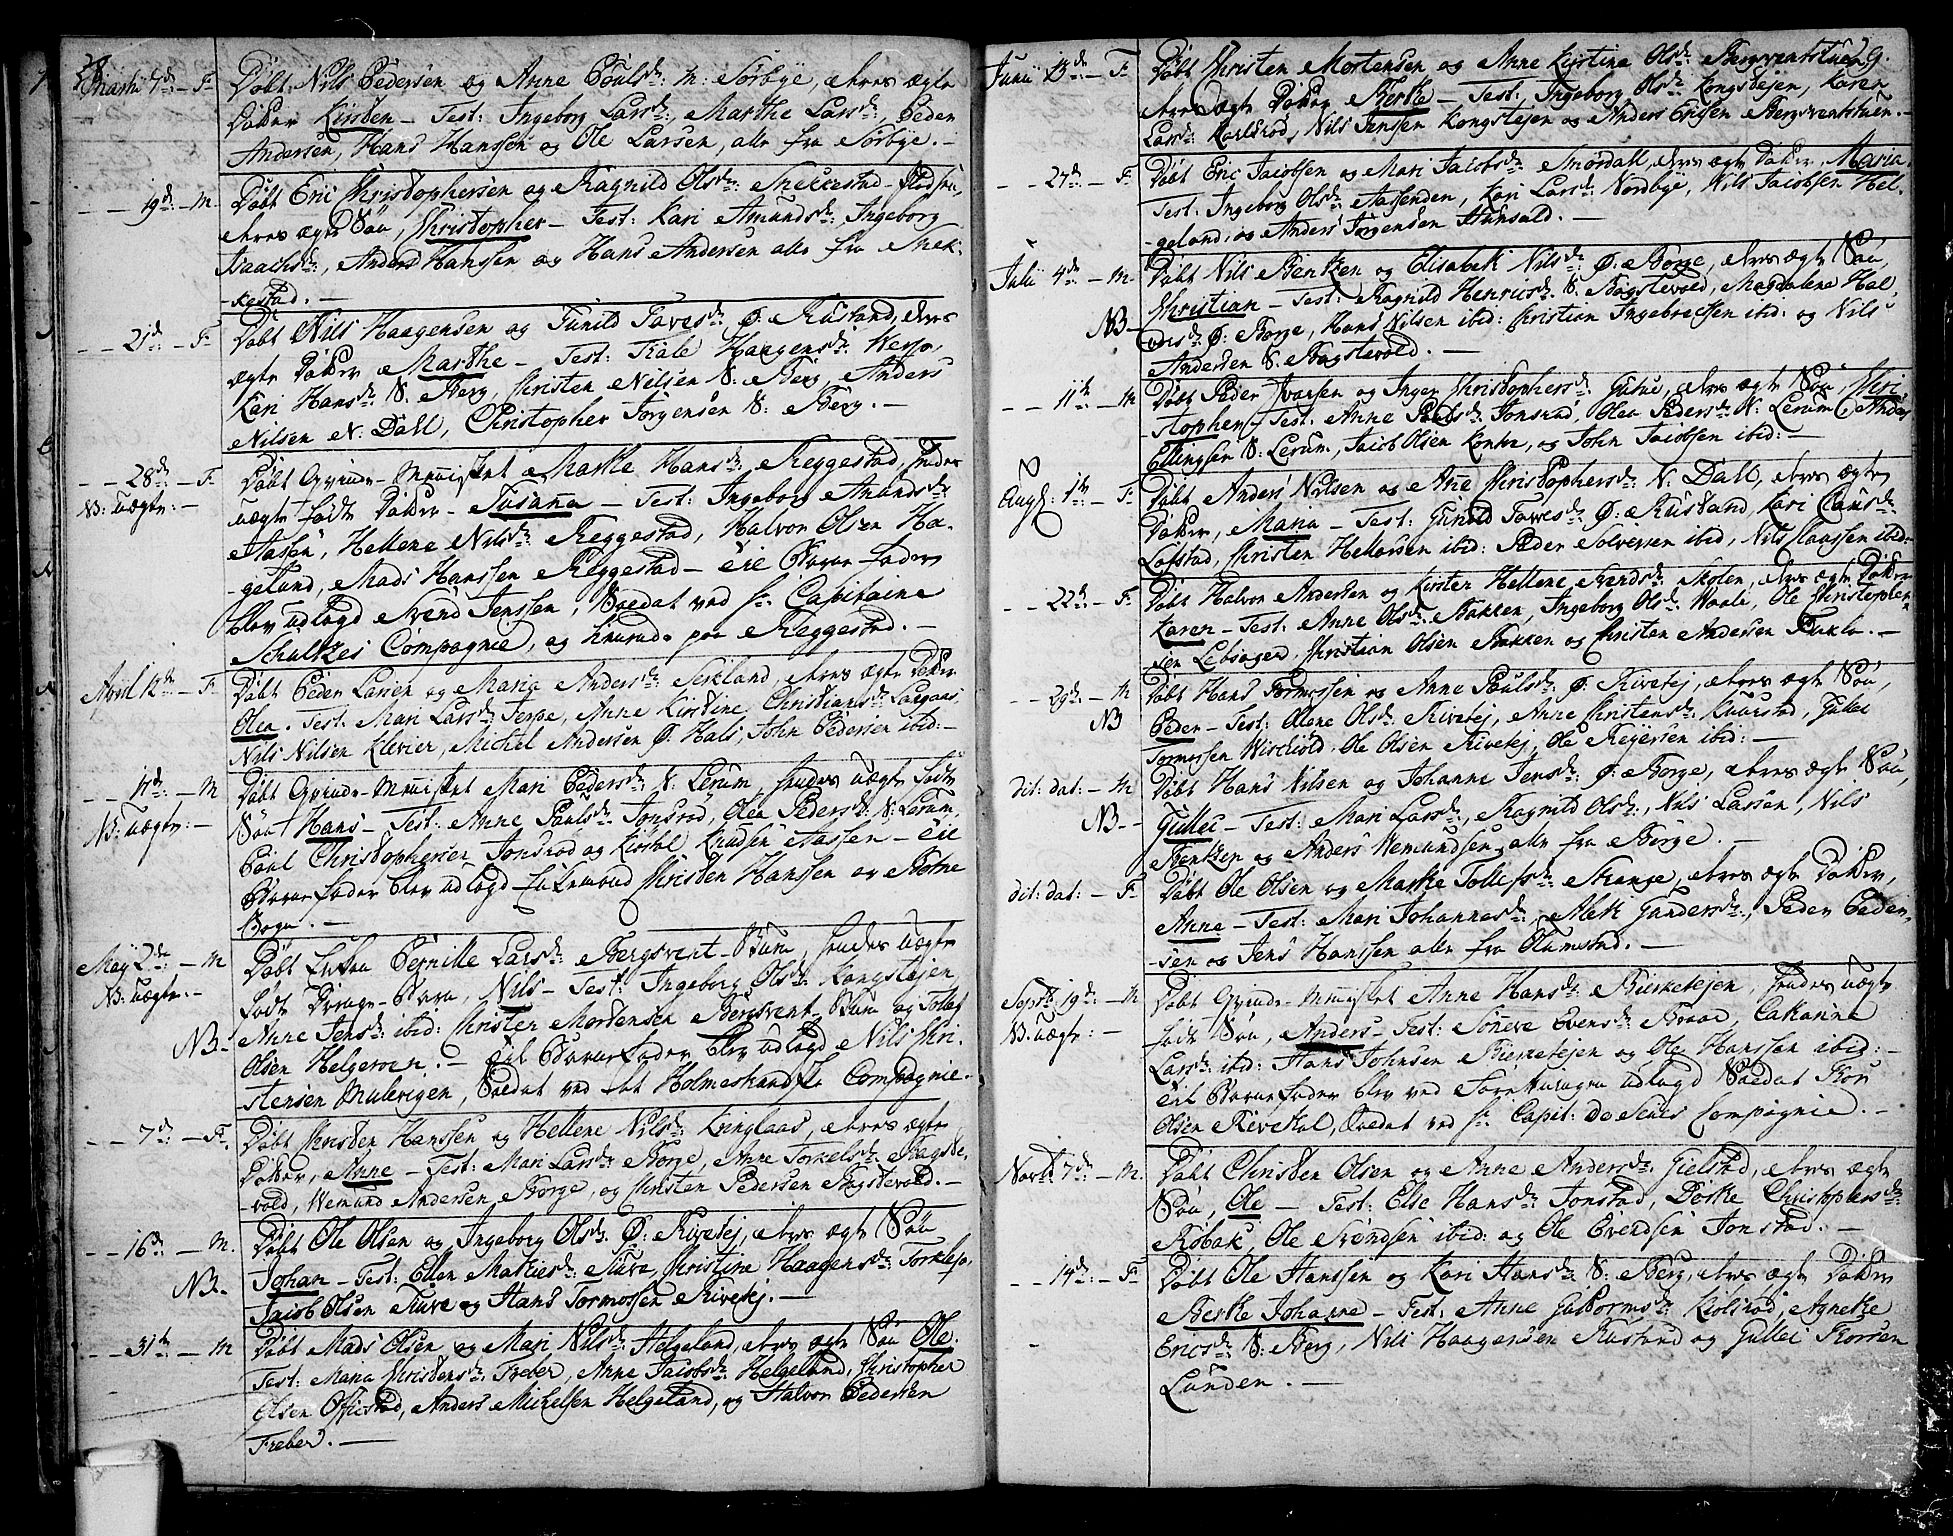 28
Martii 7de – F Döbt Nils Pedersen og Anne Poulsdr: M: Sörbye, deres ægte
Datter Kirsten – Test: Ingeborg Larsdr:, Marthe Larsdr:, Peder
Andersen, Hans Hanssen og Ole Larsen, alle fra Sörbye. –
– – 19de: – M. Döbt Eric Christophersen og Ragnild Olsdr: Sneckestad
deres ægte Sön, Christopher – Test: Kari Amundsdr: Ingeborg
Isaachsdr:, Anders Hanssen og Hans Andersen alle fra Snek-
kestad. –
– – 21de: – F Döbt Nils Haagensen og Gunild Tavesdr: Ö: Rustand, deres
ægte Datter Marthe – Test: Kale Haagensdr:
Kari Hansdr: S: Berg, Christen Nilsen S: Berg, Anders
Nilsen N: Dall, Christopher Jörgensen S: Berg. –
– – 28de: – F Döbt Qvinde-Mennisket Marthe Hansdr: Reggestad, hendes
N: uægte: – uægte födte Datter – Susana – Test: Ingeborg Amundsdr:
Aasen, Hellene Nilsdr: Reggestad, Halvor Olsen Ha-
geland, Mads Hanssen Reggestad – Til Barne Fader
blev udlagt Svend Jenssen, Soldat ved Hr: Capitaine
Schultzes Compagnie, og hiemme paa Reggestad. –
April 12de: – F Döbt Peder Larsen og Maria Andersdr: Serkland, deres ægte Datter
Olea. Test: Mari Larsdr: Jerpe, Anne Kirstine Christiansdr: Langaas,
Nils Nilsen Klevier, Michel Andersen Ö: Hals, John Pedersen ibid: –
– – 17de: – M Döbt Qvinde-Mennisket Mari Pedersdr: N: Lerum, hendes uægte födte
N: uægte: – Sön Hans – Test: Anne Poulsdr: Jonsrød, Olea Pedersdr: N: Lerum,
Poul Christophersen Jonsrød og Kiöstol Knudsen Aassen – Til
Barne Fader blev udlagt Christen Hanssen av Botne
Sogn. –
May 2de – M Döbt Pernille Larsdr: Bergsvent-Stuen, hendes uægte
N: uægte: – födte Drenge-Barn, Nils – Test: Ingeborg Olsdr: Kongstejen,
NB. Anne Jensdr: ibid: Christen Mortensen Bergsvent-Stuen og Tollef
Olsen Helgeroen. – Til Barne Fader blev udlagt Nils Chri-
stensen Mulevigen, Soldat ved det Holmestrandske Compagnie.
– – 7de: – F. Döbt Christen Hanssen og Hellene Nilsdr: Kringlaas, deres ægte
Datter, Anne – Test: Mari Larsdr: Borge, Anne Torkelsdr: Bagste-
vold, Wemund Andersen Borge, og Christen Pedersen Bagstevold. –
– – 16de: – M. Döbt Ole Olsen og Ingeborg Olsdr: Ö: Rivetej, deres ægte Sön
NB. Johan – Test: Ellen Mathiesdr: Tuve, Christine Haagensdr:
Jacob Olsen Tuve og Hans Tormossen Rivetej. –
– – 31te – M Döbt Mads Olsen og Mari Nilsdr: Helgeland, deres ægte Sön Ole.
Test: Maria Christensdr: Freber, Anne Jacobsdr: Helgeland, Christopher
Olsen Offestad, Anders Michelsen Helgeland, og Halvor Pedersen
Freber. –
29.
Junii 13de: – F Döbt Christen Mortensen og Anne Kirstine Olsdr: Bergsventstuen
deres ægte Datter Berthe – Test: Ingeborg Olsdr: Kongstejen, Karen
Larsdr: Karlsrød, Nils Jenssen Kongstejen og Anders Ericsen Bergsventstuen. –
– – 24de: – F Döbt Eric Jacobsen og Mari Jacobsdr: Snördall, deres ægte Datter, Maria.
Test: Ingeborg Olsdr: Aasenden, Kari Larsdr: Nordbye, Nils Jacobsen Hel-
geland, og Anders Jörgensen Hunsdal. –
Julii 4de: – M: Döbt Nils Bentzen og Elisabeth Nilsdr: Ö: Borge, deres ægte Sön,
NB – Christian – Test: Ragnild Henricsdr: S: Bagstevold, Magdalena Hal-
vorsdr Ö: Borge, Hans Nilsen ibid: Christian Ingebretsen ibid: og Nils
Andersen S: Bagstevold. –
– – 11te – M Döbt Peder Ivarsen og Inger Christophersdr: Gusue, deres ægte Sön, Chri-
stopher – Test: Anne Poulsdr: Jonsrud, Olea Pedersdr: N: Lerum, Anders
Ellingsen S: Lerum, Jacob Olsen Kontra, og John Jacobsen ibid: –
Aug: 1te: – F Döbt Anders Nilsen og Ane Christophersdr: N: Dall, deres ægte
Datter, Maria – Test: Gunild Tavesdr: Ö: Rustand, Kari Clausdr:
Lofstad, Christen Hellersen ibid: Peder Solvessen ibid, Nils Claussen ibid:
– – 22de: – F Döbt Halvor Andersen og Kirsten Hellene Svendsdr: Skolen, deres ægte Datter
Karen – Test: Anne Olsdr: Bakken, Ingeborg Olsdr: Vaale, Ole Christopher-
sen Lebsager, Christian Olsen Bakken og Christen Andersen Tukla. –
– – 29de: – M Döbt Hans Tormossen og Anne Paulsdr: Ö: Rivetej, deres ægte Sön,
NB Peder – Test: Olene Olsdr: Rivetej, Anne Christensdr: Knarstad, Gullec
Tormossen Wirchold, Ole Olsen Rivetej, Ole Reyersen ibid: –
dit: dat: – M Döbt Hans Nilsen og Johanne Jensdr: Ö: Borge, deres ægte Sön,
NB – Gullec – Test: Mari Larsdr:, Ragnild Olsdr:, Nils Larsen, Nils
Bentzen og Anders Wemundsen, alle fra Borge. –
dit: dat: – F Döbt Ole Olsen og Marthe Tollefsdr: Strange, deres ægte Datter,
Anne – Test: Mari Johannesdr:, Aleth Gundersdr:, Peder Peder-
sen og Jens Hanssen alle fra Olumstad. –
Septr: 19de: – M Döbt Qvinde-Mennisket Anne Hansdr: Bierketejen, hendes uægte
N: uægte: – födte Sön, Anders – Test: Sönneve Evensdr: Braae, Catharina
Larsdr: ibid: Hans Johnsen Bierketejen og Ole Hanssen ibid: –
Til Barne Fader blev ved udlagt Soldat Thor
Olsen Rivetal, Soldat ved Hr: Capit: De Seues Compagnie. –
Novbr: 7de: – M. Döbt Christen Olsen og Anne Andersdr: Gielstad, deres ægte
Sön, Ole – Test: Else Hansdr: Jonstad, Dorthe Christophersdr:
Robak, Ole Svendsen ibid: og Ole Evendsen Jonstad. –
– – 14de: – F Döbt Ole Hanssen og Kari Hansdr: S: Berg, deres ægte Datter
Berthe Johanne – Test: Anne Guttormsdr: Kiölsrød, Agnethe
Ericsdr: S: Berg, Nils Haagensen Rustand og Gullec Thorsen
Lunden. –